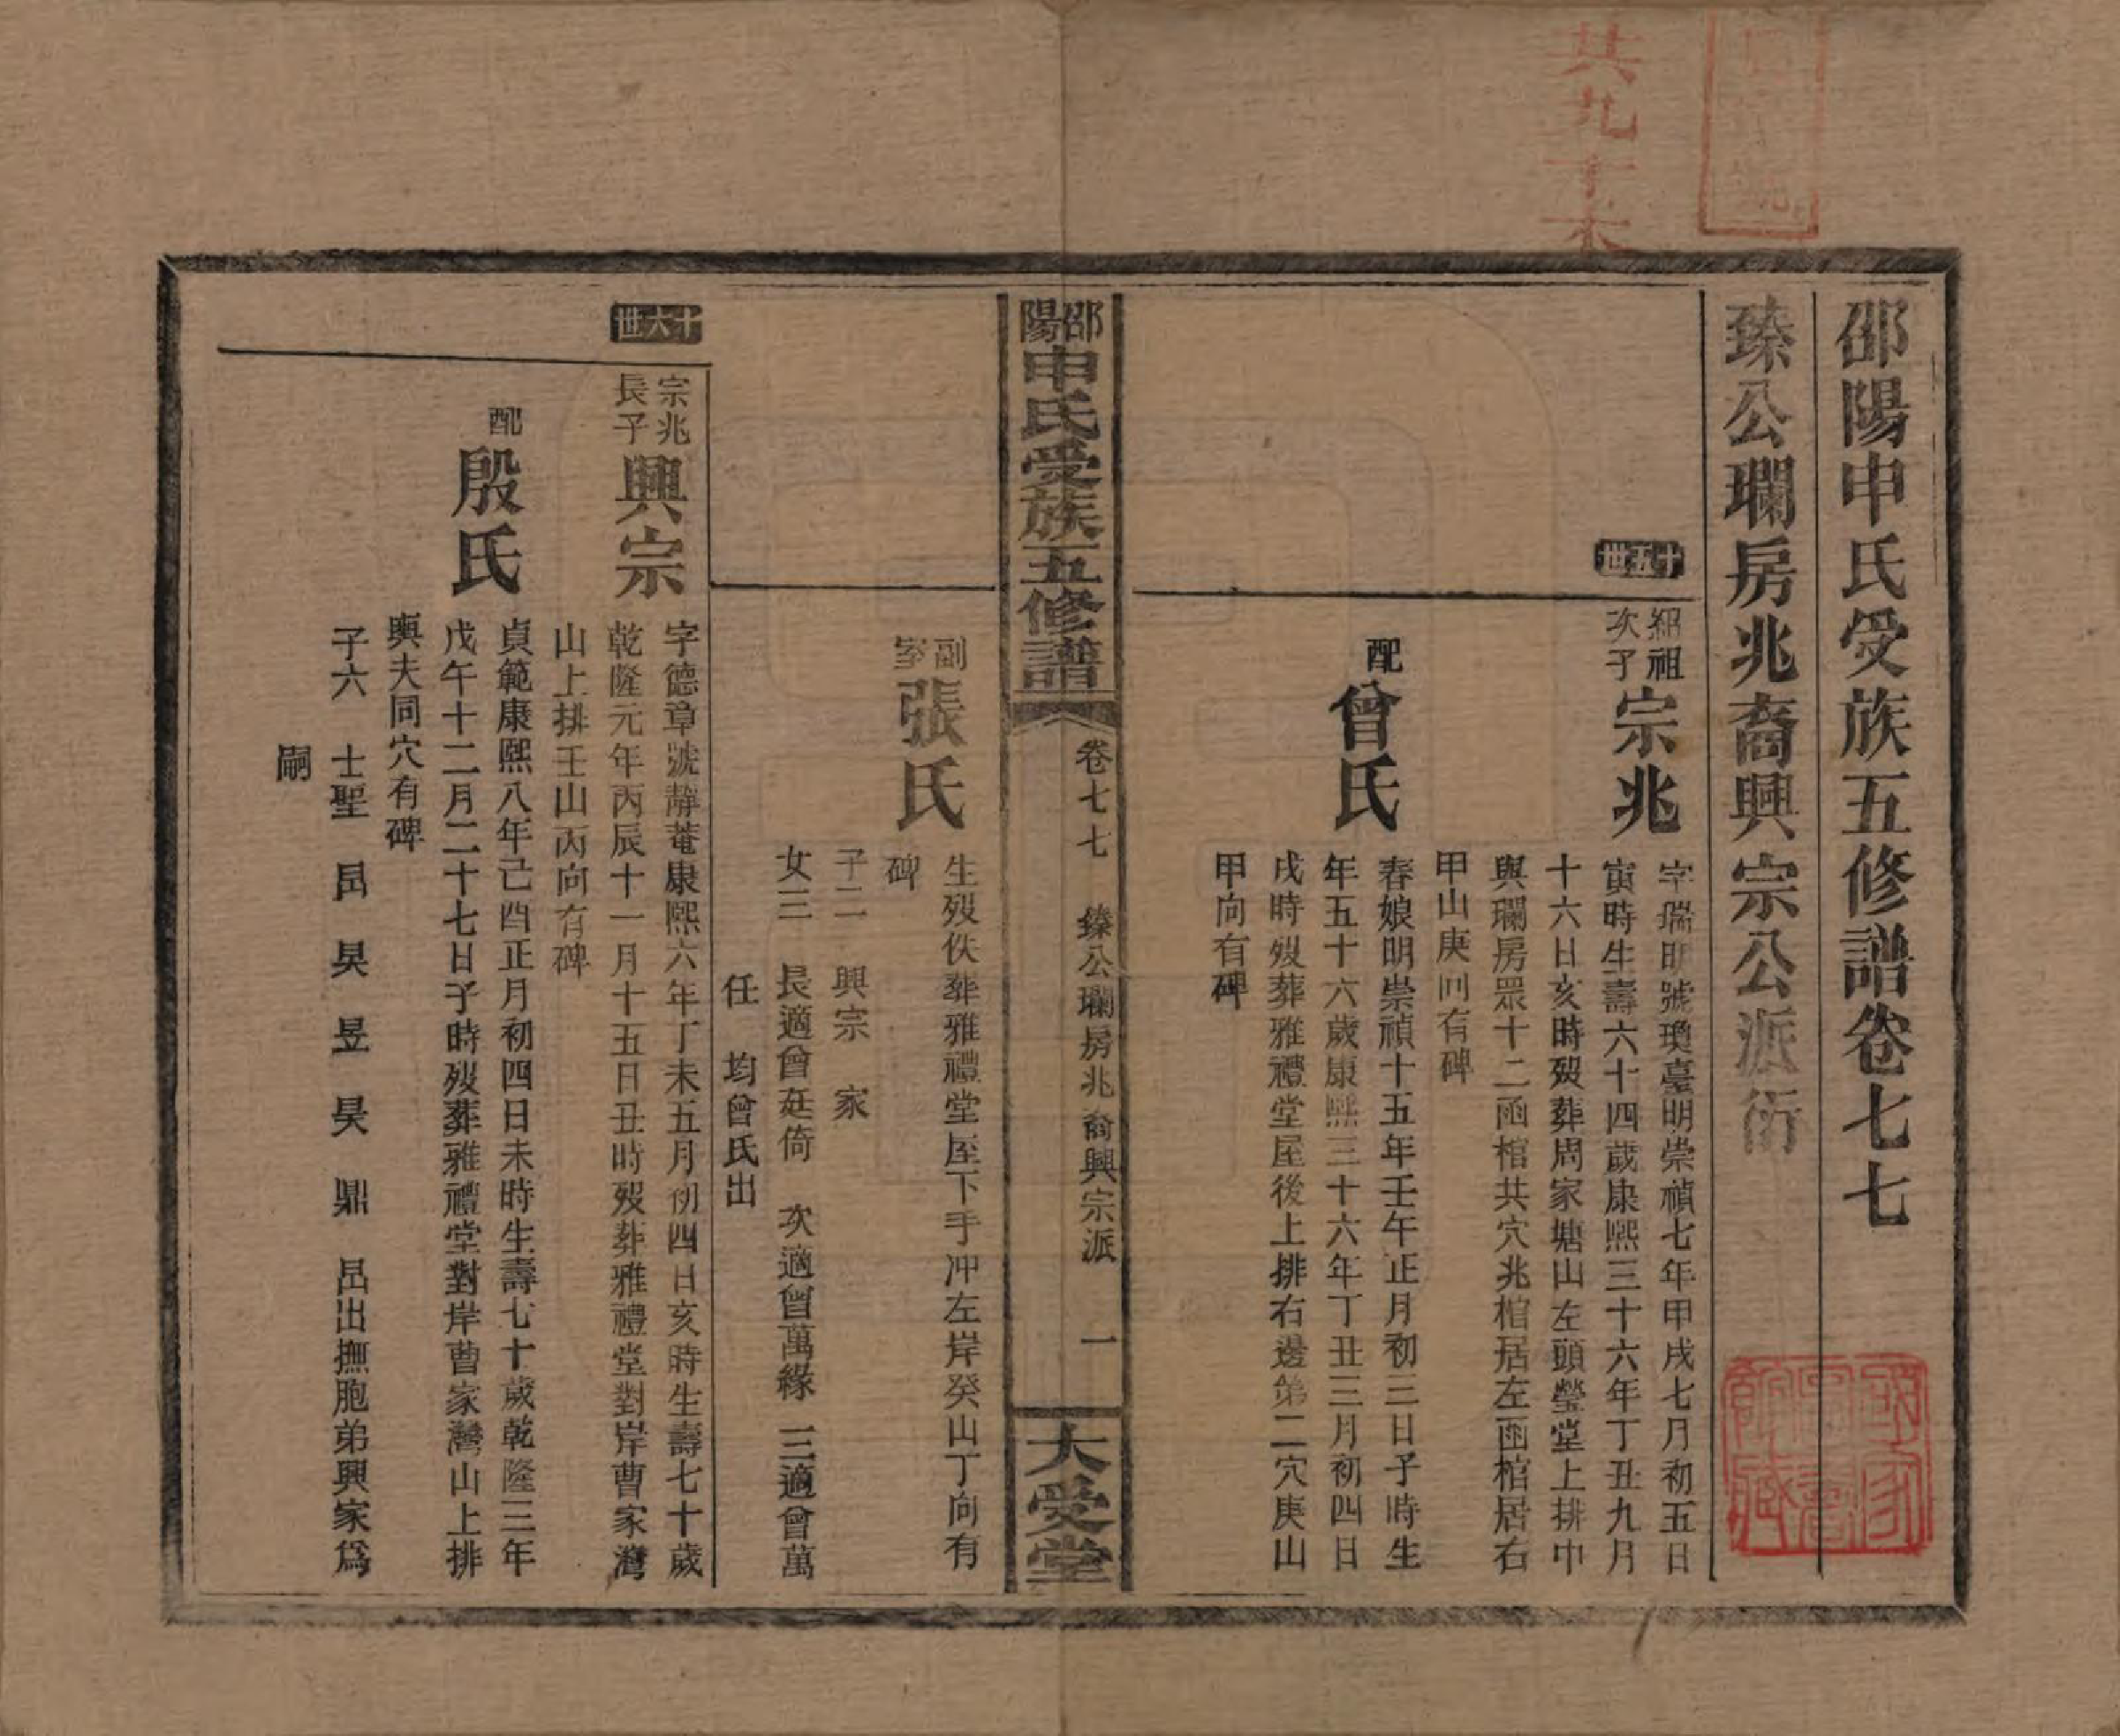 共九十本
邵陽申氏受族五修譜卷七七
臻公瓓房兆裔興宗公派衍
國家圖書館藏
十五世
紹祖次子
宗兆
字瑞明號瓊臺明崇禎七年甲戌七月初五日
寅時生壽六十四歲康熙三十六年丁丑九月
十六日亥時歿葬周家塘山左頭塋堂上排中
與瓓房眾十二函棺共穴兆棺居左函棺居右
甲山庚向有碑
配
曾氏
春娘明崇禎十五年壬午正月初三日子時生
年五十六歲康熙三十六年丁丑三月初四日
戌時歿葬雅禮堂屋後上排右邊第二穴庚山
甲向有碑
邵陽申氏受族五修譜
卷七七 臻公瓓房兆裔興宗派 一
大受堂
副室
張氏
生歿佚葬雅禮堂屋下手冲左岸癸山丁向有
碑
子二 興宗 家
女三 長適曾廷倚 次適曾萬緣 三適曾萬
任 均曾氏出
十六世
宗兆長子
興宗
字德章號靜菴康熙六年丁未五月初四日亥時生壽七十歲
乾隆元年丙辰十一月十五日丑時歿葬雅禮堂對岸曹家灣
山上排壬山丙向有碑
配
殷氏
貞範康熙八年己酉正月初四日未時生壽七十歲乾隆三年
戊午十二月二十七日子時歿葬雅禮堂對岸曹家灣山上排
與夫同穴有碑
子六 士聖 昂 昊 昱 昊 鼎 昂出撫胞弟興家爲
嗣